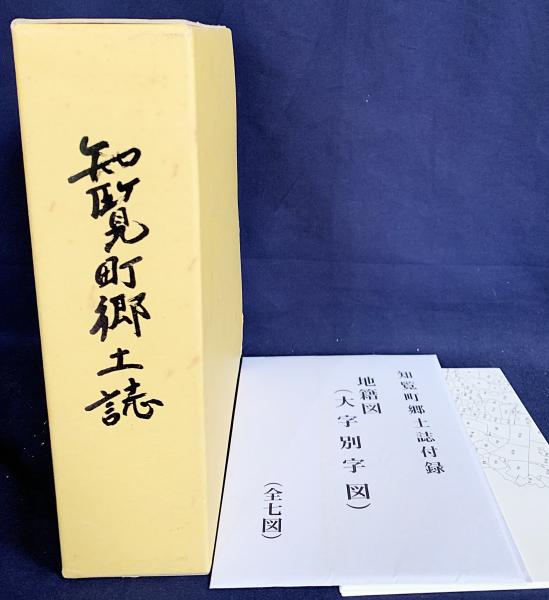 知覧町郷土誌
知覧町郷土誌付録
地籍図
（大字別字図）
（全七図）